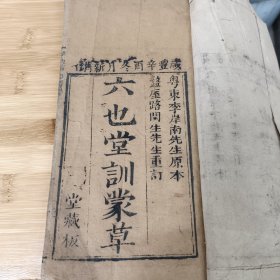 咸豐辛酉冬月新鐫
粵東李岸南先生原本
盩厔路閏生先生重訂
六也堂訓蒙草
堂藏板